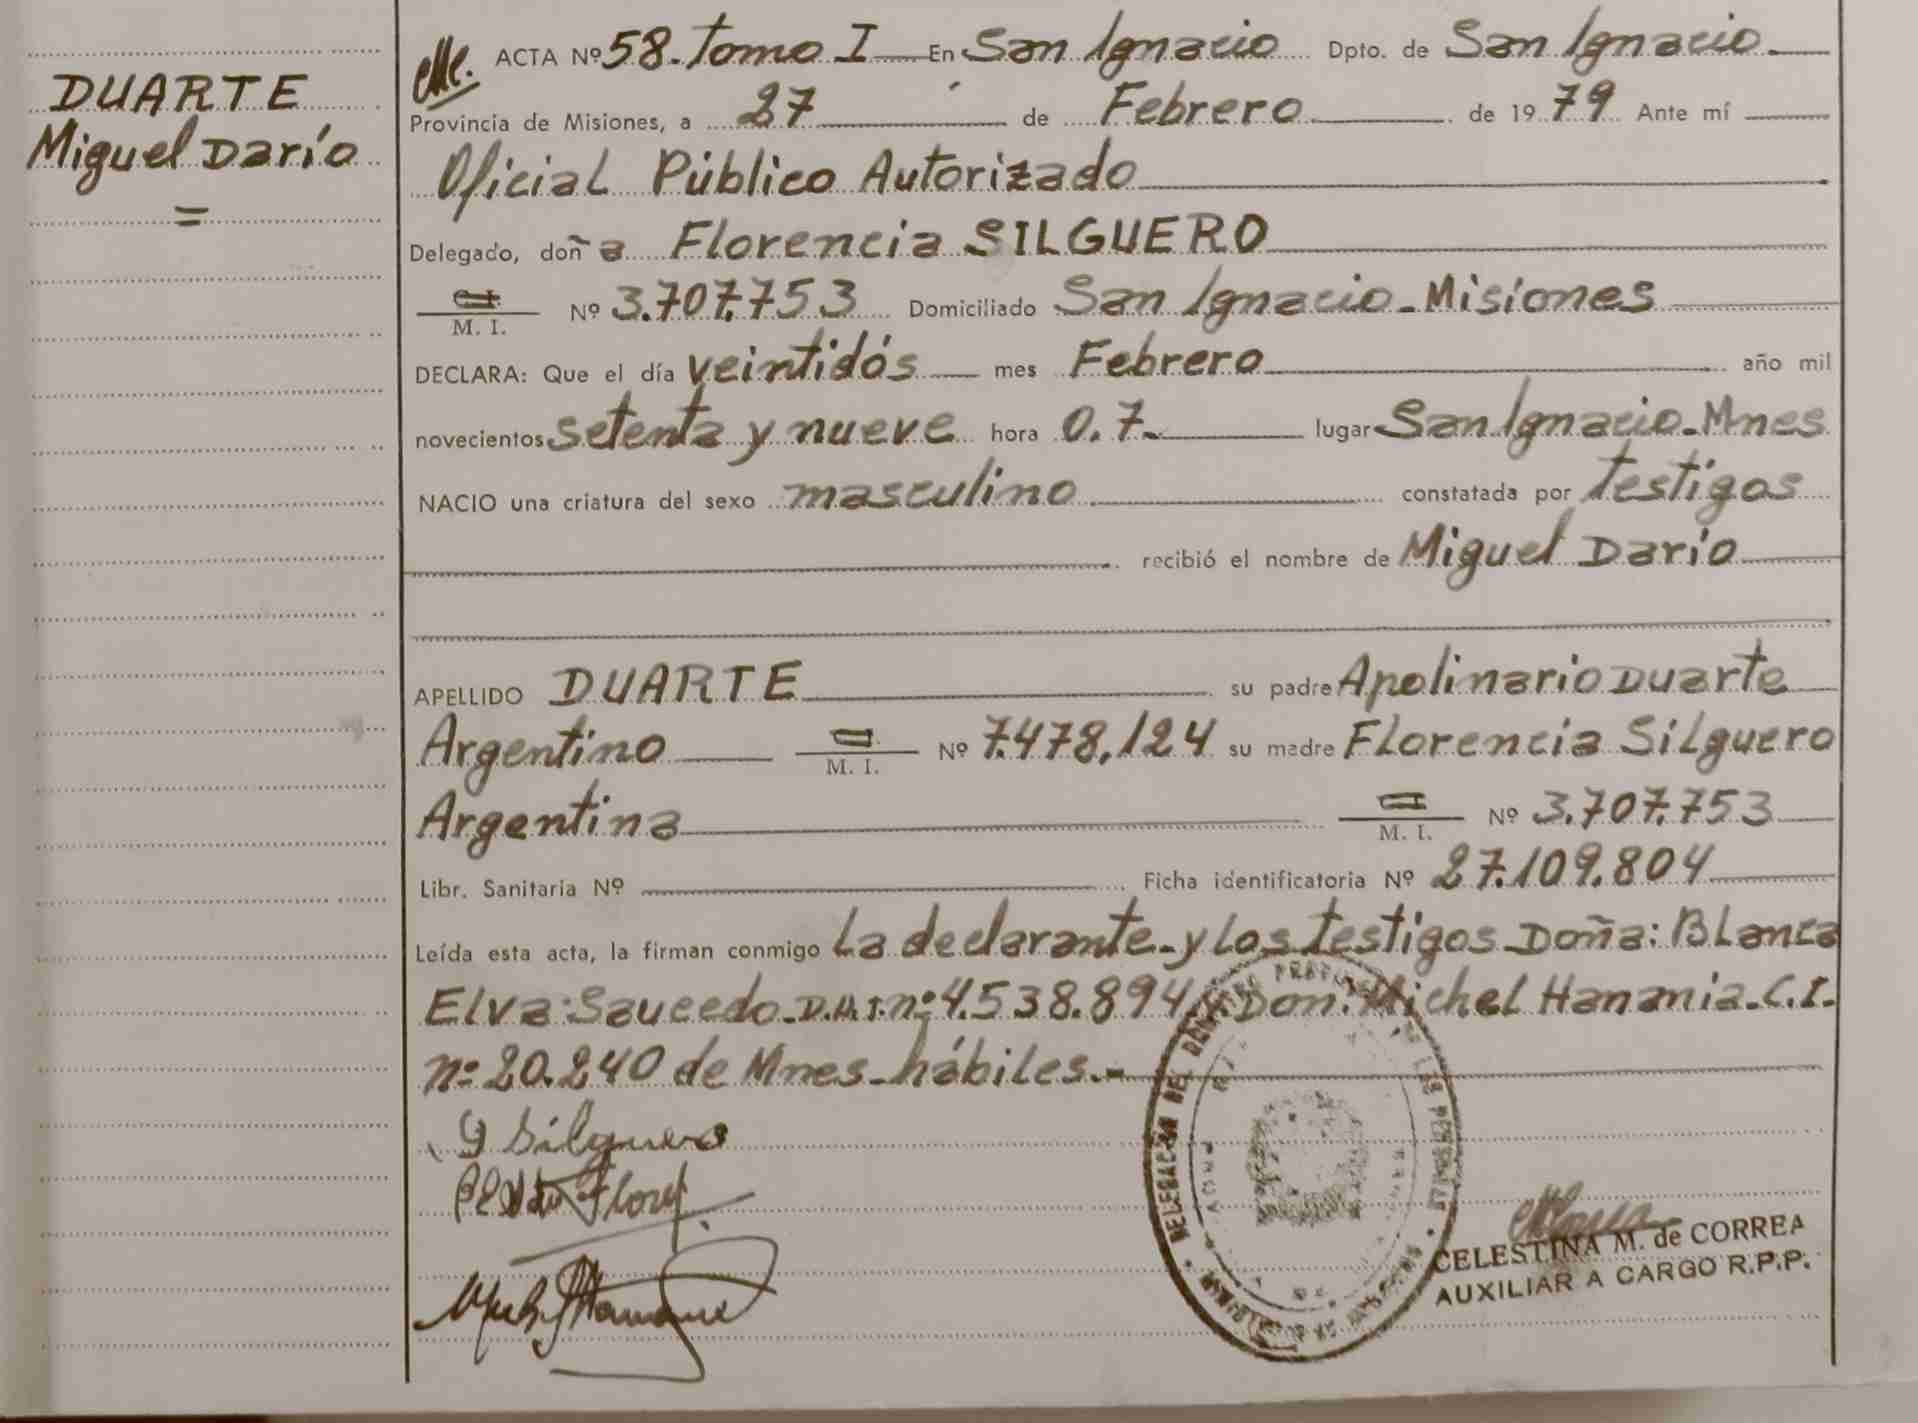 DUARTE
Miguel Darío
=
ACTA Nº 58. Tomo I En San Ignacio Dpto. de San Ignacio.
Provincia de Misiones, a 27 de Febrero de 1979 Ante mí
Oficial Público Autorizado
Delegado, doña Florencia SILGUERO
M. I. Nº 3.707.753 Domiciliado San Ignacio - Misiones
DECLARA: Que el día veintidós mes Febrero año mil
novecientos setenta y nueve hora 0.7. lugar San Ignacio - Mnes
NACIO una criatura del sexo masculino constatada por testigos
recibió el nombre de Miguel Darío
APELLIDO DUARTE su padre Apolinario Duarte
Argentino M. I. Nº 7.478.124 su madre Florencia Silguero
Argentina M. I. Nº 3.707.753
Libr. Sanitaria Nº Ficha identificatoria Nº 27.109.804
Leída esta acta, la firman conmigo La declarante - y los testigos Doña: Blanca
Elva: Saucedo - D.N.I. nº 4.538.894 y Don: Michel Hanania - C.I.
nº 20.240 de Mnes - hábiles.-
Silguero
CELESTINA M. de CORREA
AUXILIAR A CARGO R.P.P.